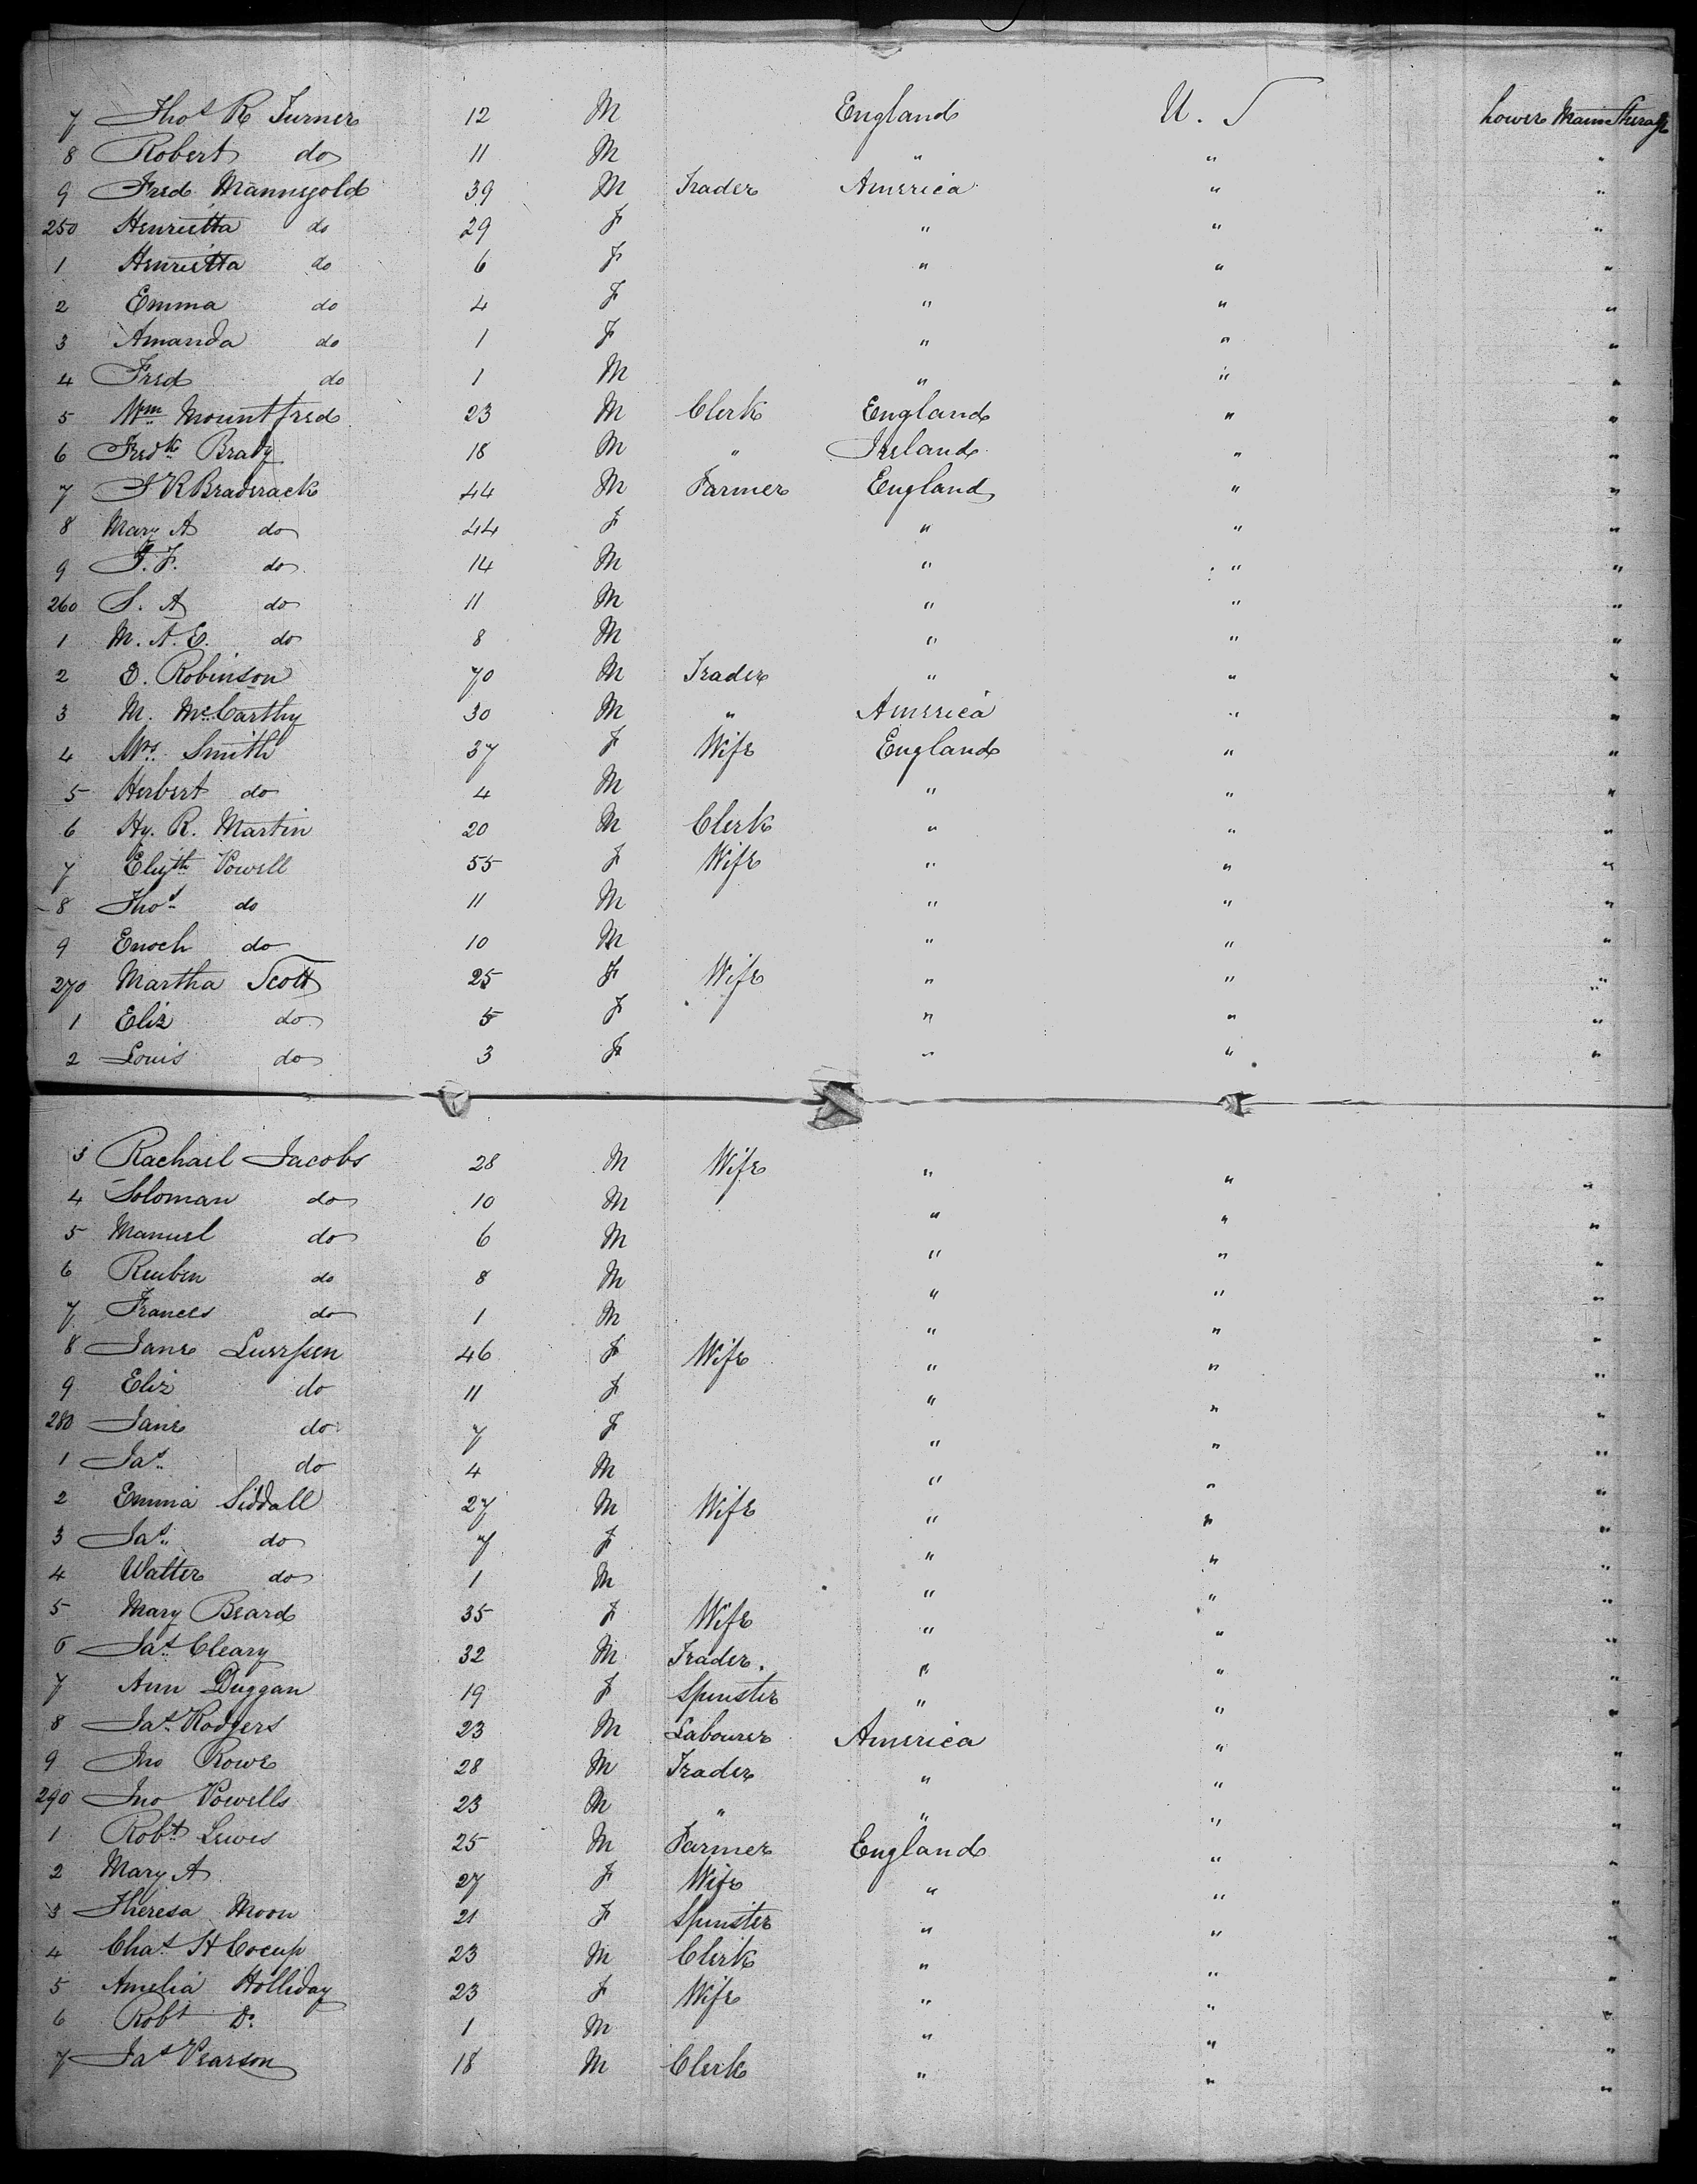 7 Thos R Turner 12 M England U. S Lower Main Steerage
8 Robert do 11 M " " "
9 Fred Mannegold 39 M Trader America " "
250 Henrietta do 29 F " " "
1 Henrietta do 6 F " " "
2 Emma do 4 F " " "
3 Amanda do 1 F " " "
4 Fred do 1 M " " "
5 Wm Mountfred 23 M Clerk England " "
6 Fredk Brady 18 M " Ireland " "
7 J R Braderack 44 M Farmer England " "
8 Mary A do 44 F " " "
9 J. F. do 14 M " " "
260 S. A do 11 M " " "
1 M. A. E. do 8 M " " "
2 E. Robinson 70 M Trader " " "
3 M. McCarthy 30 M " America " "
4 Mrs. Smith 37 F Wife England " "
5 Herbert do 4 M " " "
6 Hy. R. Martin 20 M Clerk " " "
7 Elizth Powell 55 F Wife " " "
8 Thos do 11 M " " "
9 Enoch do 10 M " " "
270 Martha Scott 25 F Wife " " "
1 Eliz do 5 F " " "
2 Louis do 3 F " " "
3 Rachael Jacobs 28 M Wife " " "
4 Soloman do 10 M " " "
5 Manuel do 6 M " " "
6 Reuben do 8 M " " "
7 Frances do 1 M " " "
8 Jane Lurrssen 46 F Wife " " "
9 Eliz do 11 F " " "
280 Jane do 7 F " " "
1 Jas. do 4 M " " "
2 Emma Siddall 27 M Wife " " "
3 Jas. do 7 F " " "
4 Walter do 1 M " " "
5 Mary Beard 35 F Wife " " "
6 Jas. Cleary 32 M Trader. " " "
7 Ann Duggan 19 F Spinster " " "
8 Jas. Rodgers 23 M Labourer America " "
9 Jno Rowe 28 M Trader " " "
290 Jno Powells 23 M " " " "
1 Robt. Lewis 25 M Farmer England " "
2 Mary A 27 F Wife " " "
3 Theresa Moon 21 F Spinster " " "
4 Chas H Cocup 23 M Clerk " " "
5 Amelia Holliday 23 F Wife " " "
6 Robt Do 1 M " " "
7 Jas Pearson 18 M Clerk " " "